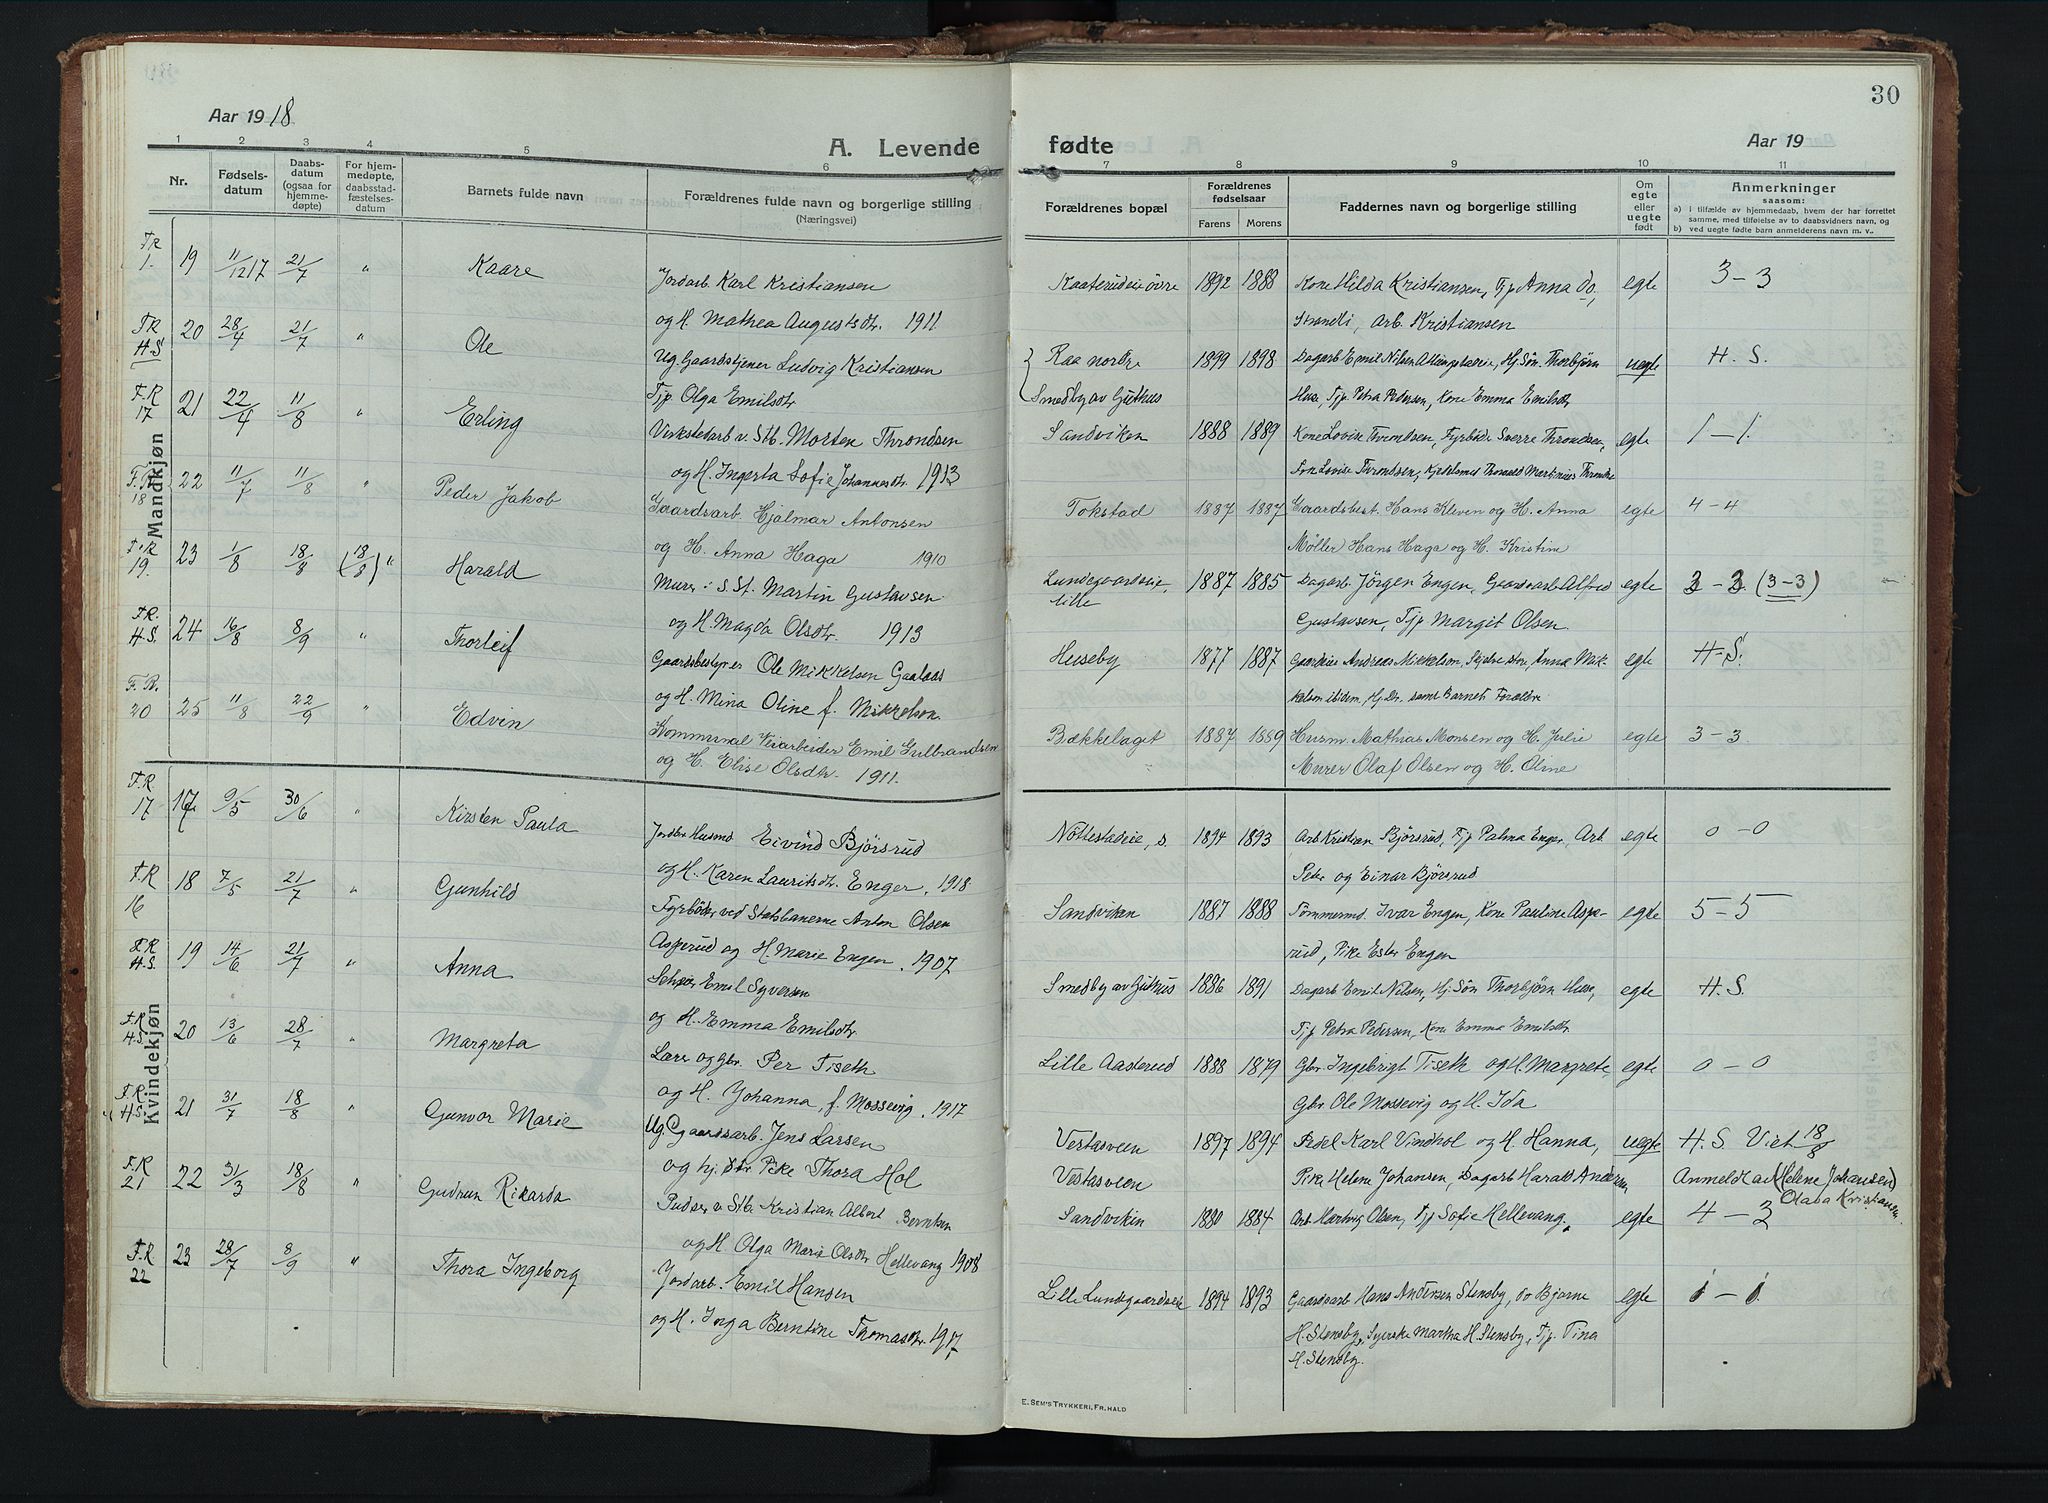 30
Aar 1918
A. Levende
fødte
Aar 19
1 2 3 4 5 6 7 8 9 10 11
Nr.
Fødsels-
datum
Daabs-
datum
(ogsaa for
hjemme-
døpte)
For hjem-
medøpte,
daabsstad-
fæstelses-
datum
Barnets fulde navn
Forældrenes fulde navn og borgerlige stilling
(Næringsvei)
Forældrenes bopæl
Forældrenes
fødselsaar
Farens
Morens
Faddernes navn og borgerlige stilling
Om
egte
eller
uegte
født
Anmerkninger
saasom:
a) i tilfælde av hjemmedaab, hvem der har forrettet
samme, med tilføielse av to daabsvidners navn, og
b) ved uegte fødte barn anmelderens navn m. v..
Mandkjøn
F.R. 1. 19 11/12 17 21/7 " Kaare Jordarb. Karl Kristiansen Kaaterudeie øvre 1892 1888 Kone Hilda Kristiansen, Tjp Anna do, egte 3-3
og H. Mathea Augustsdtr. 1911 Strandli, Arb. Kristiansen
F.R. H.S 20 28/4 21/7 " Ole Ug. Gaardstjener Ludvig Kristiansen Raa nordre 1899 1898 Dagarb Emil Nilsen, Hj. Søn. Thorbjørn uegte H. S.
Tjp Olga Emilsdtr Smedby av Guthus Huse, Tjp. Petra Pedersen, Kone Emma Emilsdtr
F.R 17 21 22/4 11/8 " Erling Virkstedarb v. Stb. Morten Throndsen Sandviken 1888 1889 Kone Lovise Throndsen, Fyrbøde Sverre Throndsen, egte 1-1.
og H. Ingerta Sofie Johannesdtr. 1913 Lovise Throndsen, Kjedelsmed Thorvald Martinius Throndse
F.R. 18 22 11/7 11/8 " Peder Jakob Gaardsarb. Hjalmar Antonsen Tokstad 1887 1887 Gaardsbest. Hans Kleven og H. Anna egte 4-4
og H. Anna Haga 1910 Møller Hans Haga og H. Kristine
F.R 19. 23 1/8 18/8 (18/8) " Harald Murer i S. St. Martin Gustavsen Lundegaardseie, lille 1887 1885 Dagarb. Jørgen Engen, Gaardsarb Alfred egte 3-3 (3-3)
og H. Magda Olsdtr. 1913 Gustavsen, Tjp Margit Olsen.
F.R. H.S. 24 16/8 8/9 " Thorleif Gaardsbestyrer Ole Mikkelsen Gaalaas Huseby 1877 1887 Gaardeier Andreas Mikkelsen, Skjelve store, Anna Mik- egte H-S.
og H. Mina Oline f. Mikkelsen. kelsen ibidem, Hj. Dr. samt Barnets Forældre
F.R. 20 25 11/8 22/9 " Edvin Kommunal Veiarbeider Emil Gulbrandsen Bækkelaget 1887 1889 Husm. Mathias Monsen og H. Julie egte 3-3.
og H. Elise Olsdtr. 1911. Murer Olaf Olsen og H. Oline
Kvindekjøn
F.R 17 17 9/5 30/6 " Kirsten Paula Jordbr Husmd Eivind Bjørsrud Nøttestadeie, s. 1894 1893 Arb Kristian Bjørsrud, Tjp Palma Enger, Arb. egte 0-0
og H. Karen Lauritsdtr. Enger. 1918 Peder og Einar Bjørsrud
F.R 16 18 7/5 21/7 " Gunhild Fyrbøder ved Statsbanerne Anton Olsen Sandviken 1887 1888 Tømmermd. Ivar Engen, Kone Pauline Aspe- egte 5-5
Asperud og H. Marie Engen. 1907 rud, Pike Ester Engen
F.R H.S. 19 14/6 21/7 " Anna Emil Syversen Smedby av Guthus 1886 1891 Dagarb Emil Nilsen, Hj. Søn Thorbjørn Huse, egte H.S.
og H. Emma Emilsdtr Tjp Petra Pedersen, Kone Emma Emilsdtr
F.R H.S 20 13/6 28/7 " Margreta Lærer og Gbr. Per Tiseth Lille Aasterud 1888 1879 Gbr. Ingebrigt Tiseth og H. Margrete, egte 0-0
og H. Johanna, f. Mossevig. 1917 Gbr. Ole Mossevig og H. Ida
F.R. H.S. 21 31/7 18/8 " Gunvor Marie Ug Gaardsarb. Jens Larsen Vestasveen 1897 1894 Pedel Karl Vindhol og H. Hanna, uegte H. S. Viet 18/8
og hj. dtr. Pike Thora Hol Vestasveen Pike Helene Johansen, Dagarb Harald Andersen Anmeldt av (Helene Johansen) Olava Kristiansen.
F.R 21 22 31/3 18/8 " Gudrun Rikarda Pudser v Stb. Kristian Albert Berntsen Sandviken 1880 1884 Arb Hartvig Olsen, Tjp Sofie Hellevang. egte 4-3
og H Olga Marie Olsdtr Hellevang 1908
F.R 22 23 28/7 8/9 " Thora Ingeborg Jordarb. Emil Hansen Lille Lundgaardseie 1894 1893 Gaardsarb Hans Andersen Stensby, do Bjarne egte 1-1.
og H. Inga Berntine Thomasdtr. 1917 H. Stensby, Syerske Martha H. Stensby, Tjp. Tina
H. Stensby.
E. SEM'S TRYKKERI, FR. HALD